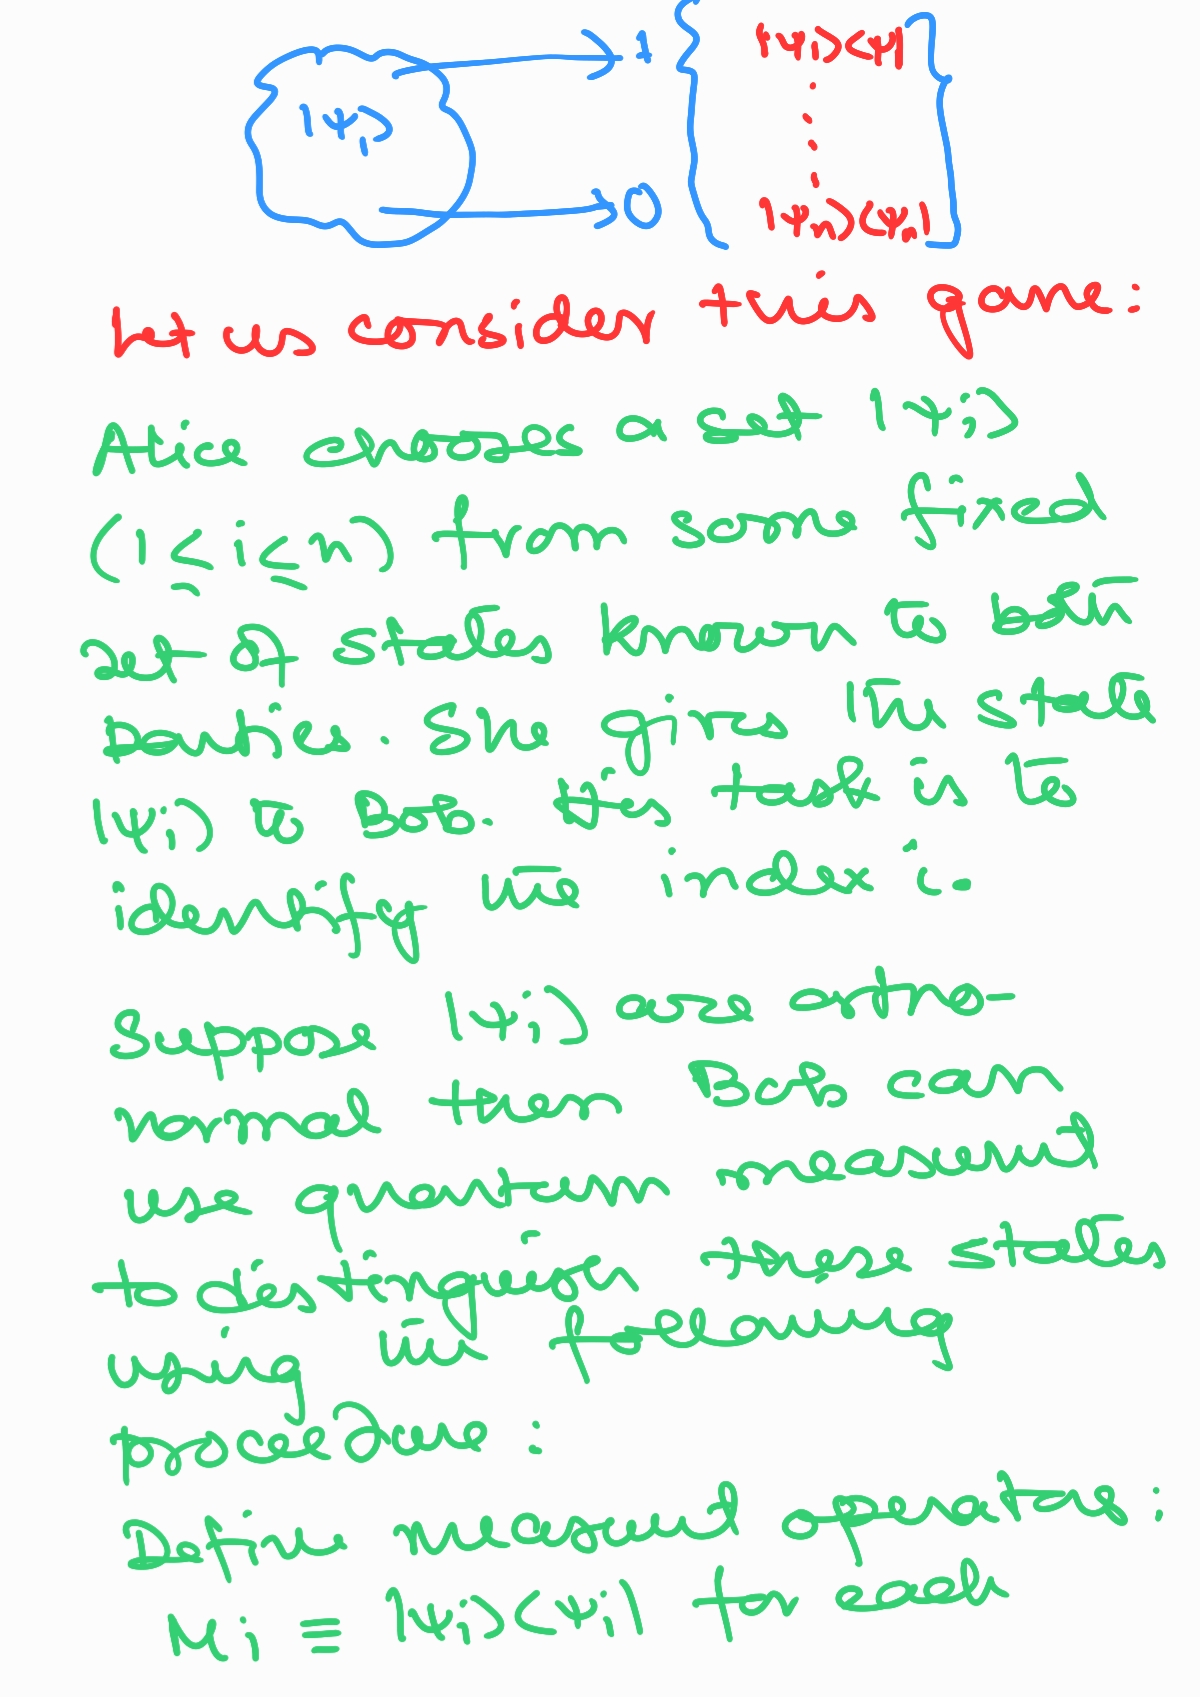 |ψ₁⟩ → 1 { |ψ₁⟩⟨ψ| }
→ 0 |ψₙ⟩⟨ψₙ|
Let us consider this game:
Alice chooses a set |ψᵢ⟩
(1 ≤ i ≤ n) from some fixed
set of states known to both
parties. She gives the state
|ψᵢ⟩ to Bob. His task is to
identify the index i.
Suppose |ψᵢ⟩ are ortho-
normal then Bob can
use quantum measurement
to distinguish these states
using the following
procedure:
Define measurement operators:
Mᵢ ≡ |ψᵢ⟩⟨ψᵢ| for each